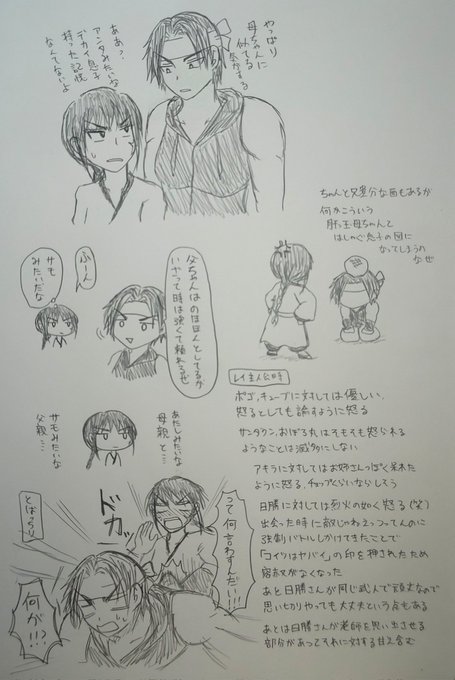 やっぱり
母ちゃんに
似てる
気がする
ああ?
アンタみたいな
デカイ息子
持った記憶
なんてないよ
ちゃんと兄貴分な面もあるが
何かこういう
肝っ玉母ちゃんと
はしゃぐ息子の図に
なってしまうの
なぜ
父ちゃんはのほほんとしてるが
いざって時は強くて頼れるぜ
ふーん
サモ
みたいだな
あたしみたいな
母親と…
サモみたいな
父親…
レイ主人公時
ポゴ、キューブに対しては優しい。
怒るとしても諭すように怒る
サンダウン、おぼろ丸はそもそも怒られる
ようなことは滅多にしない
アキラに対してはお姉さんっぽく呆れた
ように怒る。チョップくらいならしそう
日勝に対しては烈火の如く怒る(笑)
出会った時に敵じゃねえっつってんのに
強制バトルしかけてきたことで
「コイツはヤバイ」の印を押されたため
容赦がなくなった
あと日勝さんが同じ武人で頑丈なので
思いっきりやっても大丈夫という点もある
あとは日勝さんが老師を思い出させる
部分があってそれに対する甘え含む
って何言わすんだい!!
ドカッ
とばっちり
何が!!?